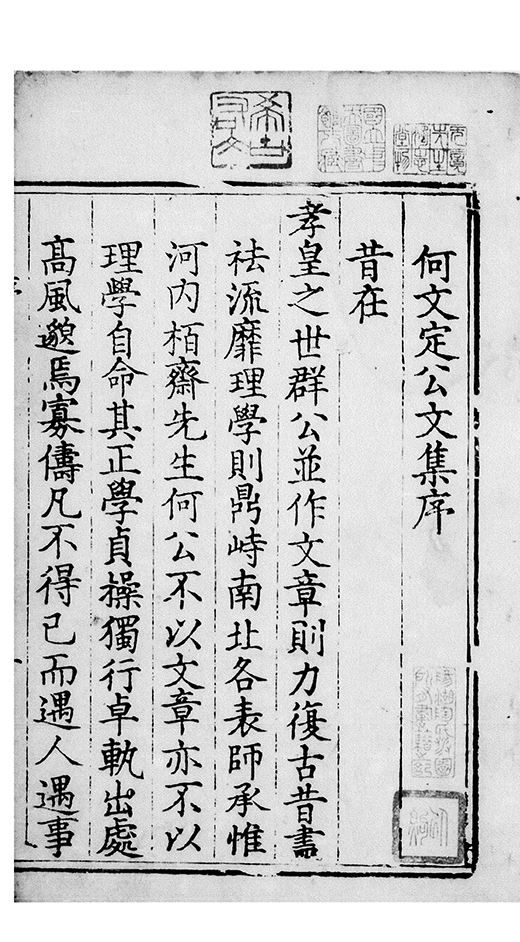 何文定公文集序
昔在
孝皇之世群公並作文章則力復古昔盡
祛流靡理學則鼎峙南北各表師承惟
河內栢齋先生何公不以文章亦不以
理學自命其正學貞操獨行卓軌出處
高風邈焉寡儔凡不得已而遇人遇事